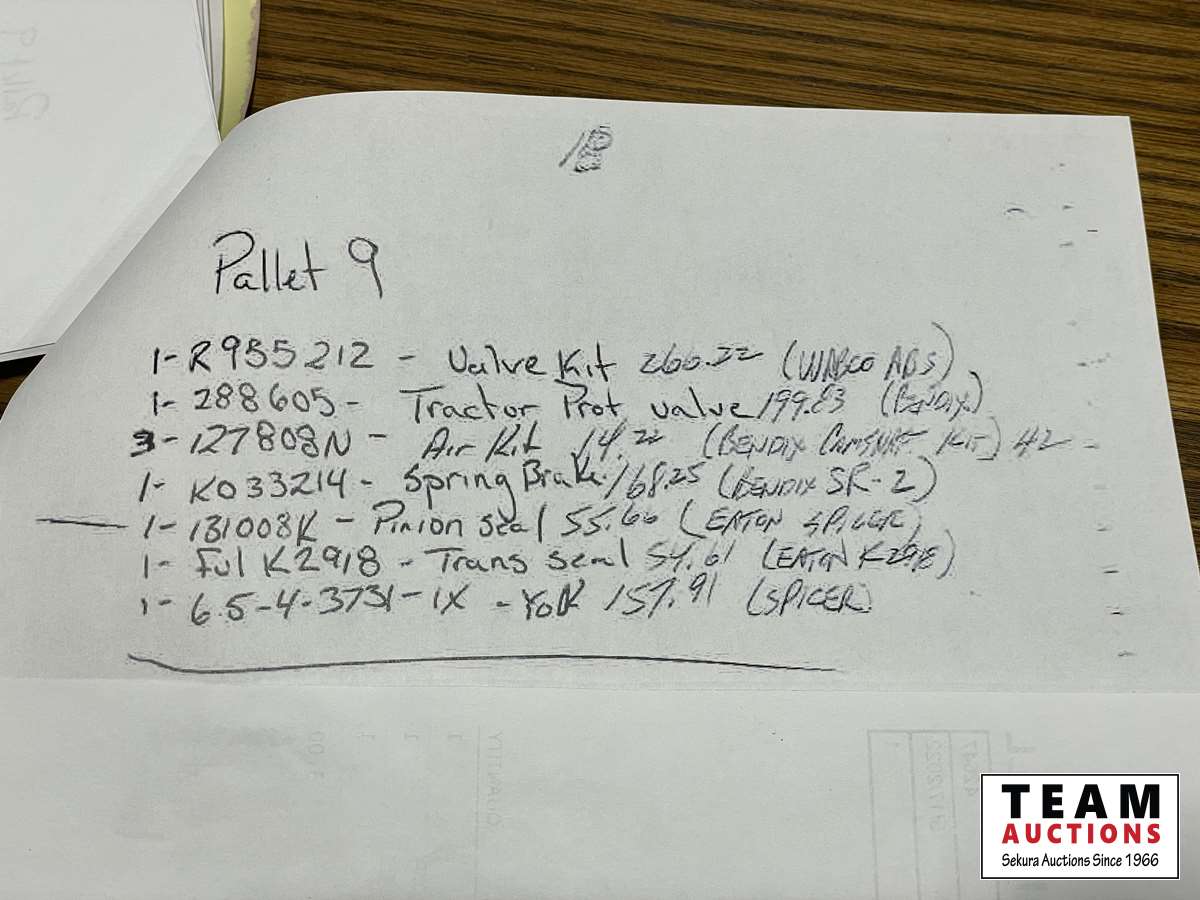 Pallet 9
1- R955212 - Valve Kit 266.22 (WABCO ABS)
1- 288605 - Tractor Prot valve 199.83 (BENDIX)
3- 127808N - Air Kit 14.22 (BENDIX CAMSHAFT KIT) 42
1- K033214 - Spring Brake 168.25 (BENDIX SR-2)
1- 131008K - Pinion Seal 55.66 (EATON SPICER)
1- Ful K2918 - Trans seal 54.61 (EATON K2918)
1- 6.5-4-3731-1X - Yok 157.91 (SPICER)
QUANTITY
TEAM
AUCTIONS
Sekura Auctions Since 1966